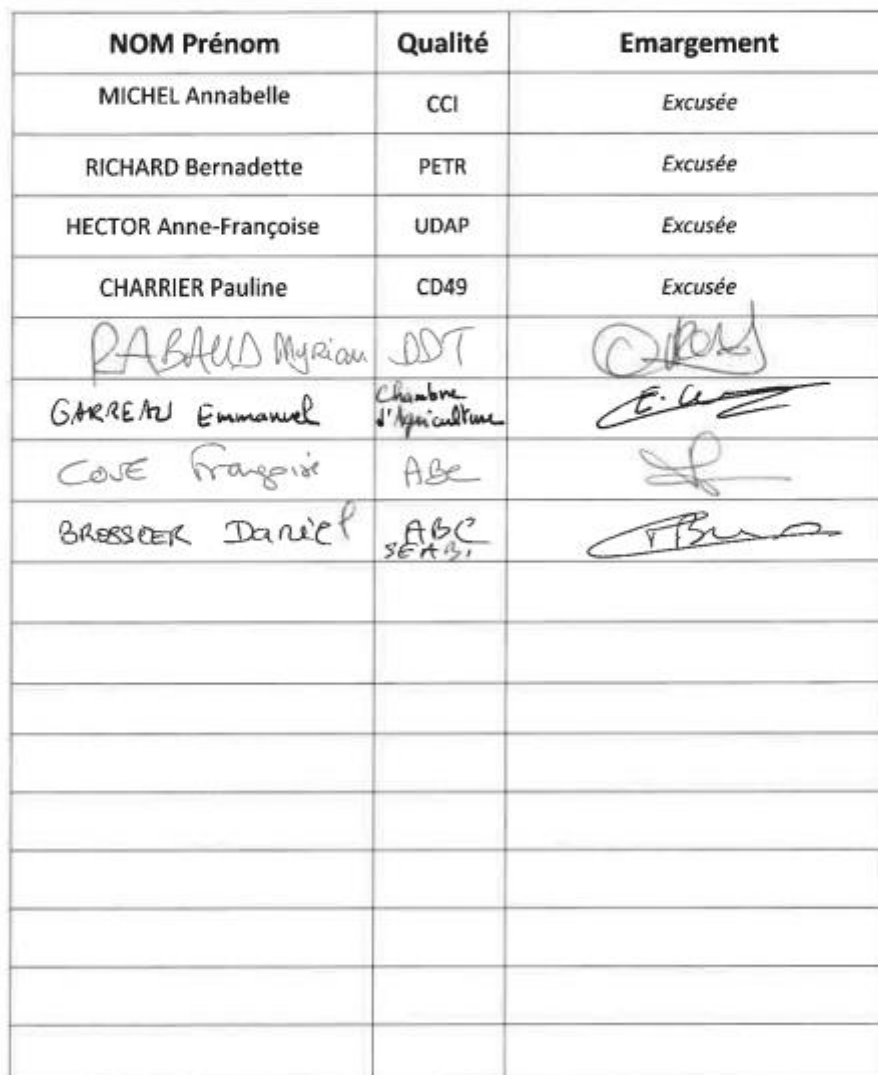 NOM Prénom Qualité Emargement
MICHEL Annabelle CCI Excusée
RICHARD Bernadette PETR Excusée
HECTOR Anne-Françoise UDAP Excusée
CHARRIER Pauline CD49 Excusée
RABAUD Myriam DDT
GARREAU Emmanuel Chambre
d'Agriculture
COVE Françoise ABC
Daniel ABC